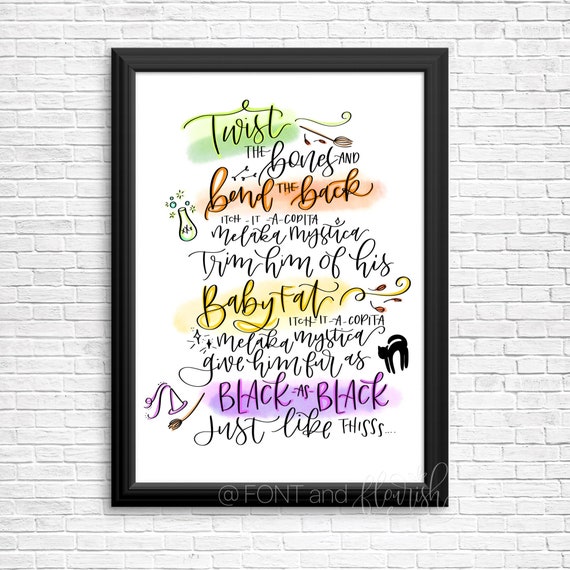 Twist
THE bones AND
bend THE back
ITCH-IT-A-COPITA
melaka mystica
Trim him of his
Baby Fat
ITCH-IT-A-COPITA
melaka mystica
give him fur as
BLACK AS BLACK
Just like THISSS....
@ FONT and flourish